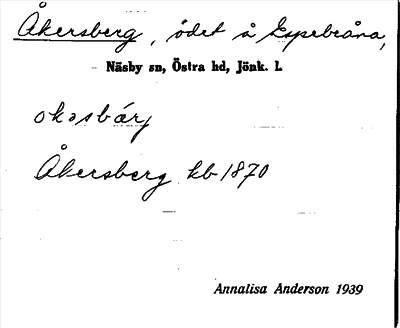 Åkersberg, ödet å Espebråna,
Näsby sn, Östra hd, Jönk. l.
okasbárj
Åkersberg kb 1870
Annalisa Anderson 1939